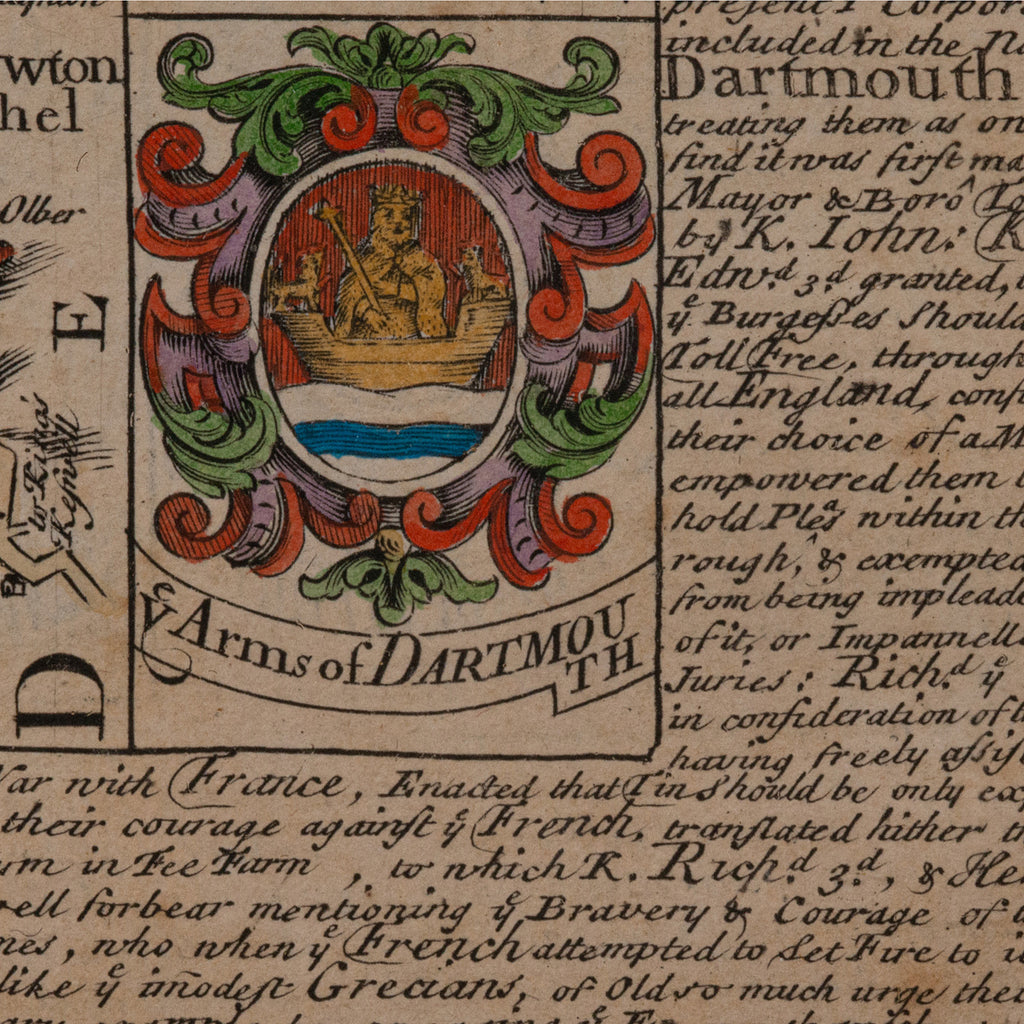 wton
hel
Olber
E
D
to King's
yͤ Arms of DARTMOU
TH
present
included in the
Dartmouth
treating them as on
find it was first ma
Mayor & Borô To
by K. Iohn: K
Edwᵈ 3ᵈ granted,
yͤ Burgeſſes Should
Toll Free, through
all England, conſi
their choice of a M
empowered them
hold Pleᵃs within th
rough, & exempted
from being impleade
of it, or Impannell
Juries: Richᵈ yͤ
in conſideration of
having freely aſſiſ
War with France, Enacted that Tin Should be only ex
their courage againſt yͤ French, tranſlated hither
rm in Fee Farm, to which K. Richᵈ 3ᵈ, & He
well forbear mentioning yͤ Bravery & Courage of
mes, who when yͤ French attempted to Set Fire to
like yͤ im̄odeſt Grecians, of Old so much urge thei